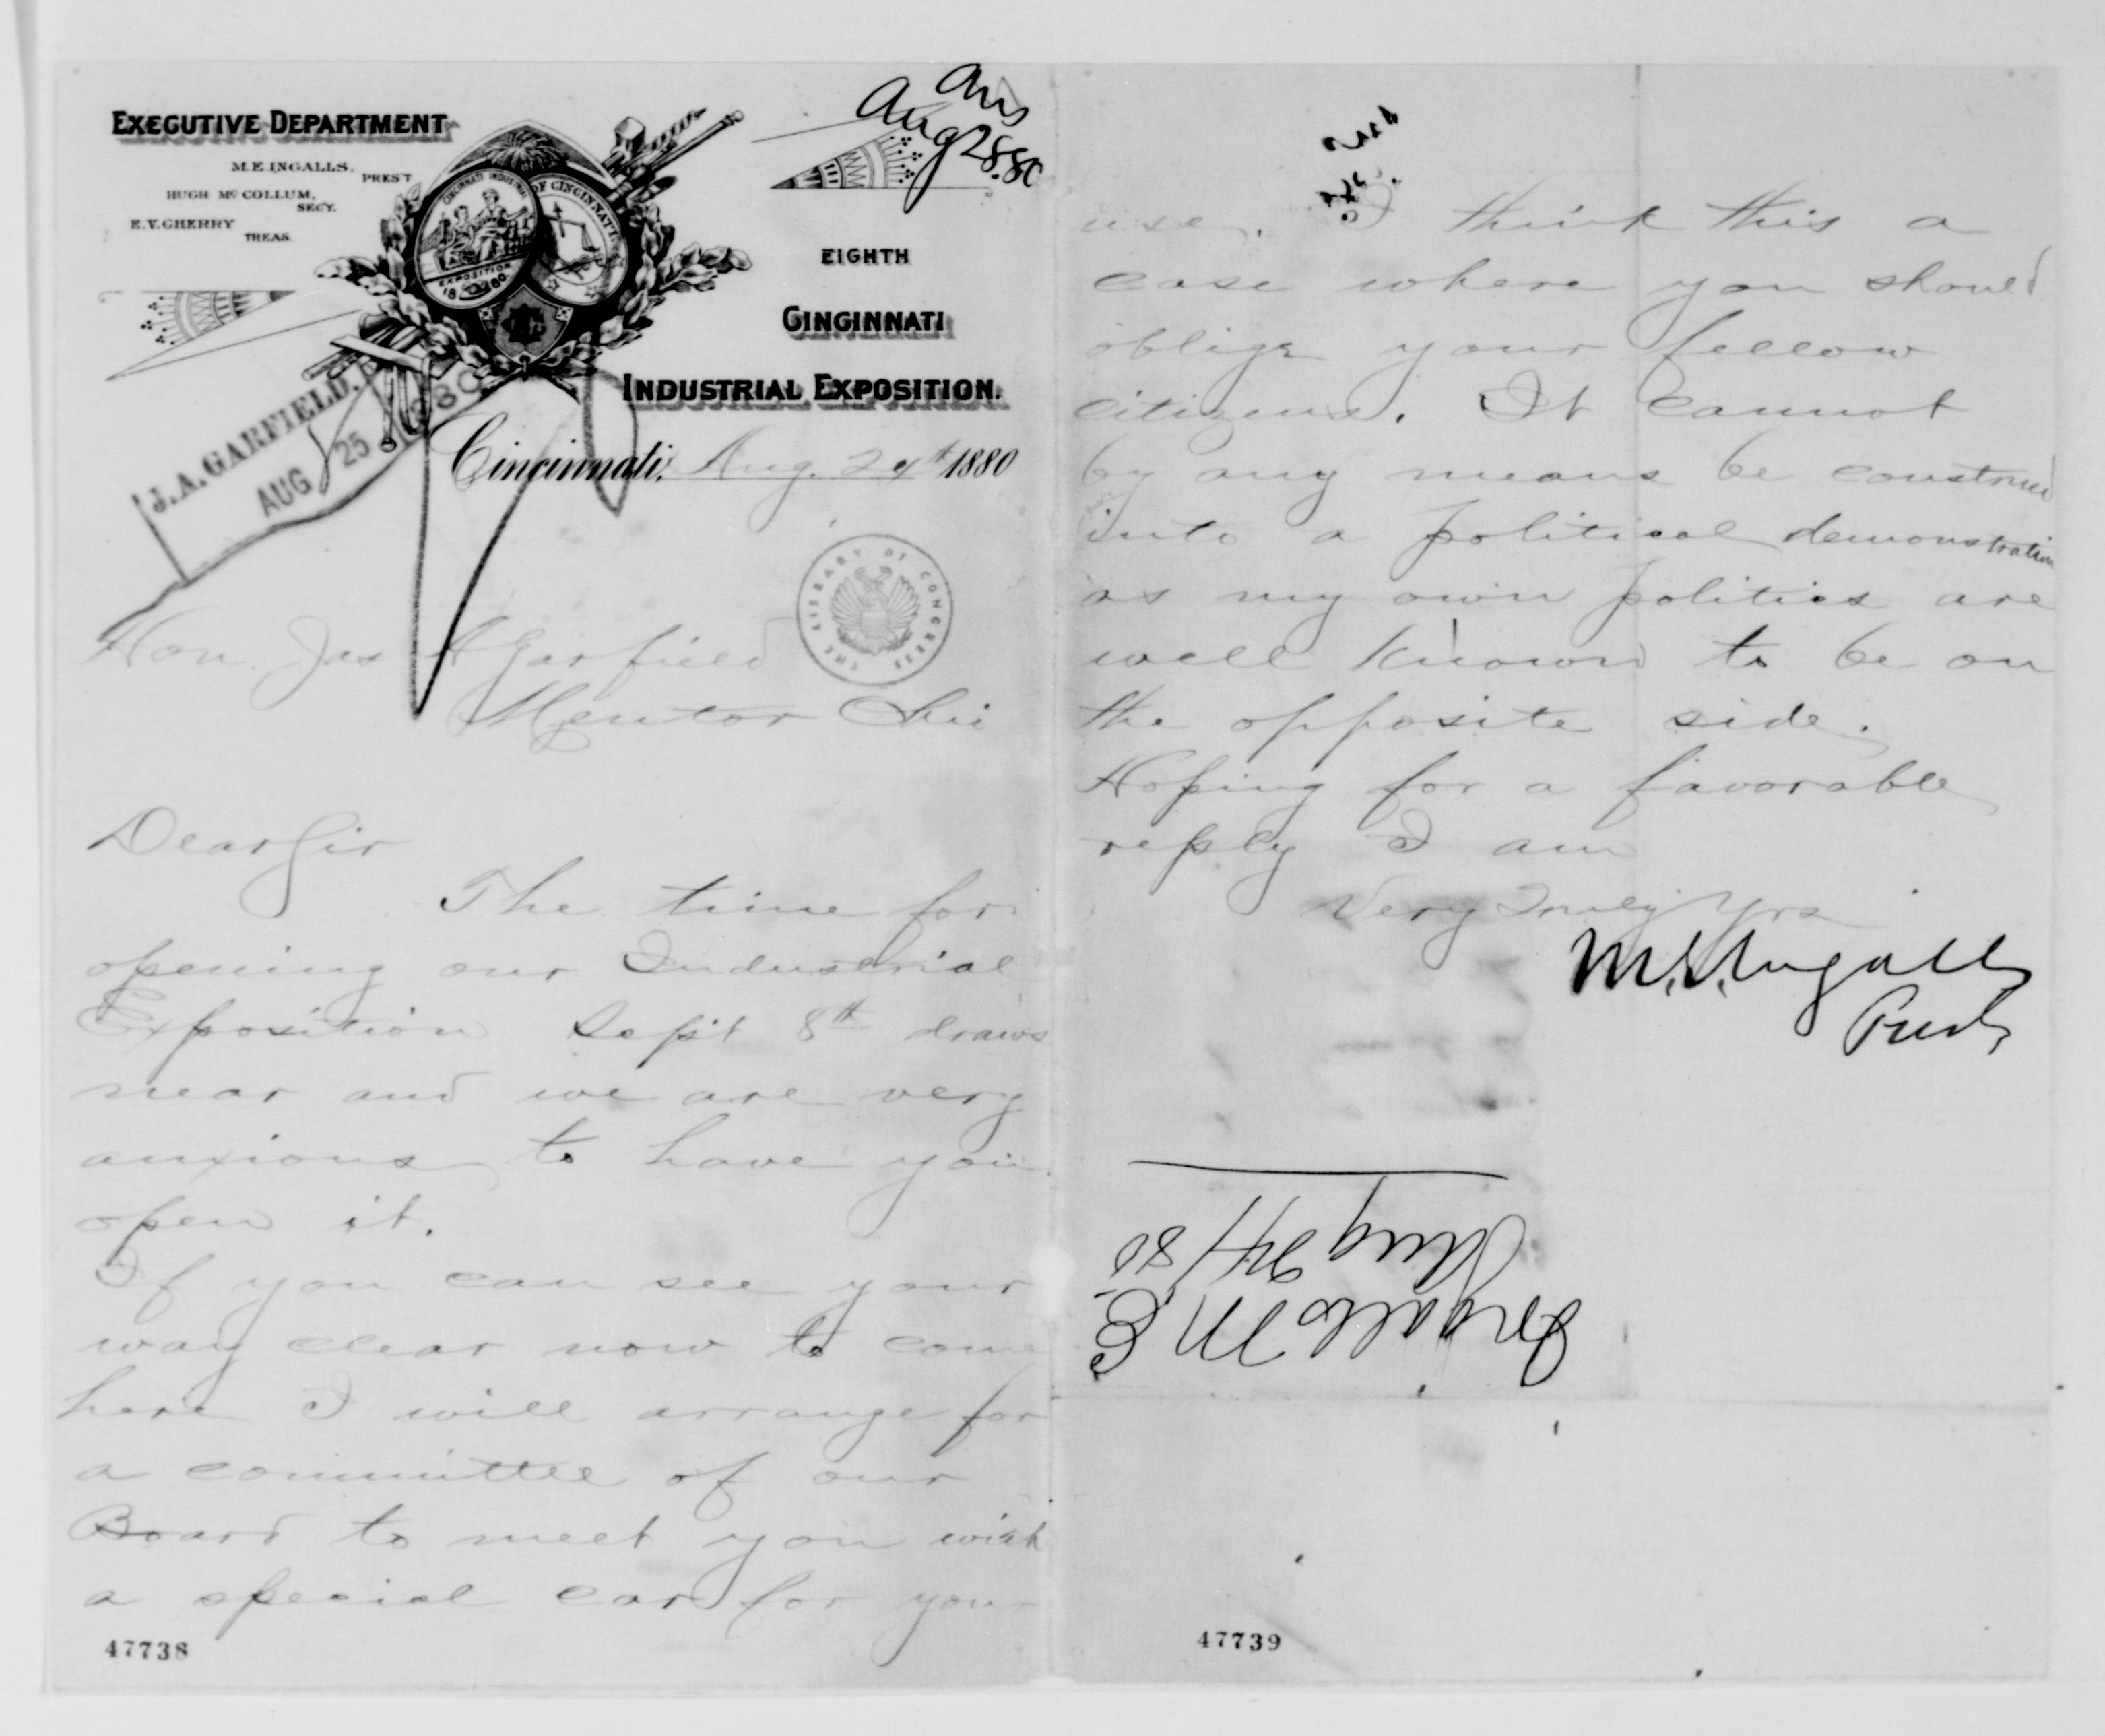 EXECUTIVE DEPARTMENT
M. E. INGALLS,
PRES'T
HUGH Mc COLLUM,
SEC'Y.
E. V. CHERRY
TREAS.
CINCINNATI INDUSTRIAL
EXPOSITION
1880
OF CINCINNATI
Ans
Aug 28.80
EIGHTH
CINCINNATI
INDUSTRIAL EXPOSITION.
J. A. GARFIELD.
AUG 25 1880
Cincinnati, Aug. 24th 1880
THE LIBRARY OF CONGRESS
Hon. Jas A Garfield
Mentor Ohio
Dear Sir
The time for
opening our Industrial
Exposition Sept 8th draws
near and we are very
anxious to have you
open it.
If you can see your
way clear now to come
here I will arrange for
a committee of our
Board to meet you with
a special car for your
47738
use. I think this a
case where you should
oblige your fellow
citizens. It cannot
by any means be construed
into a political demonstration
as my own politics are
well known to be on
the opposite side.
Hoping for a favorable
reply I am
Very Truly Yrs
M. E. Ingalls
Prest
Ingalls M E
Aug 24/80
47739